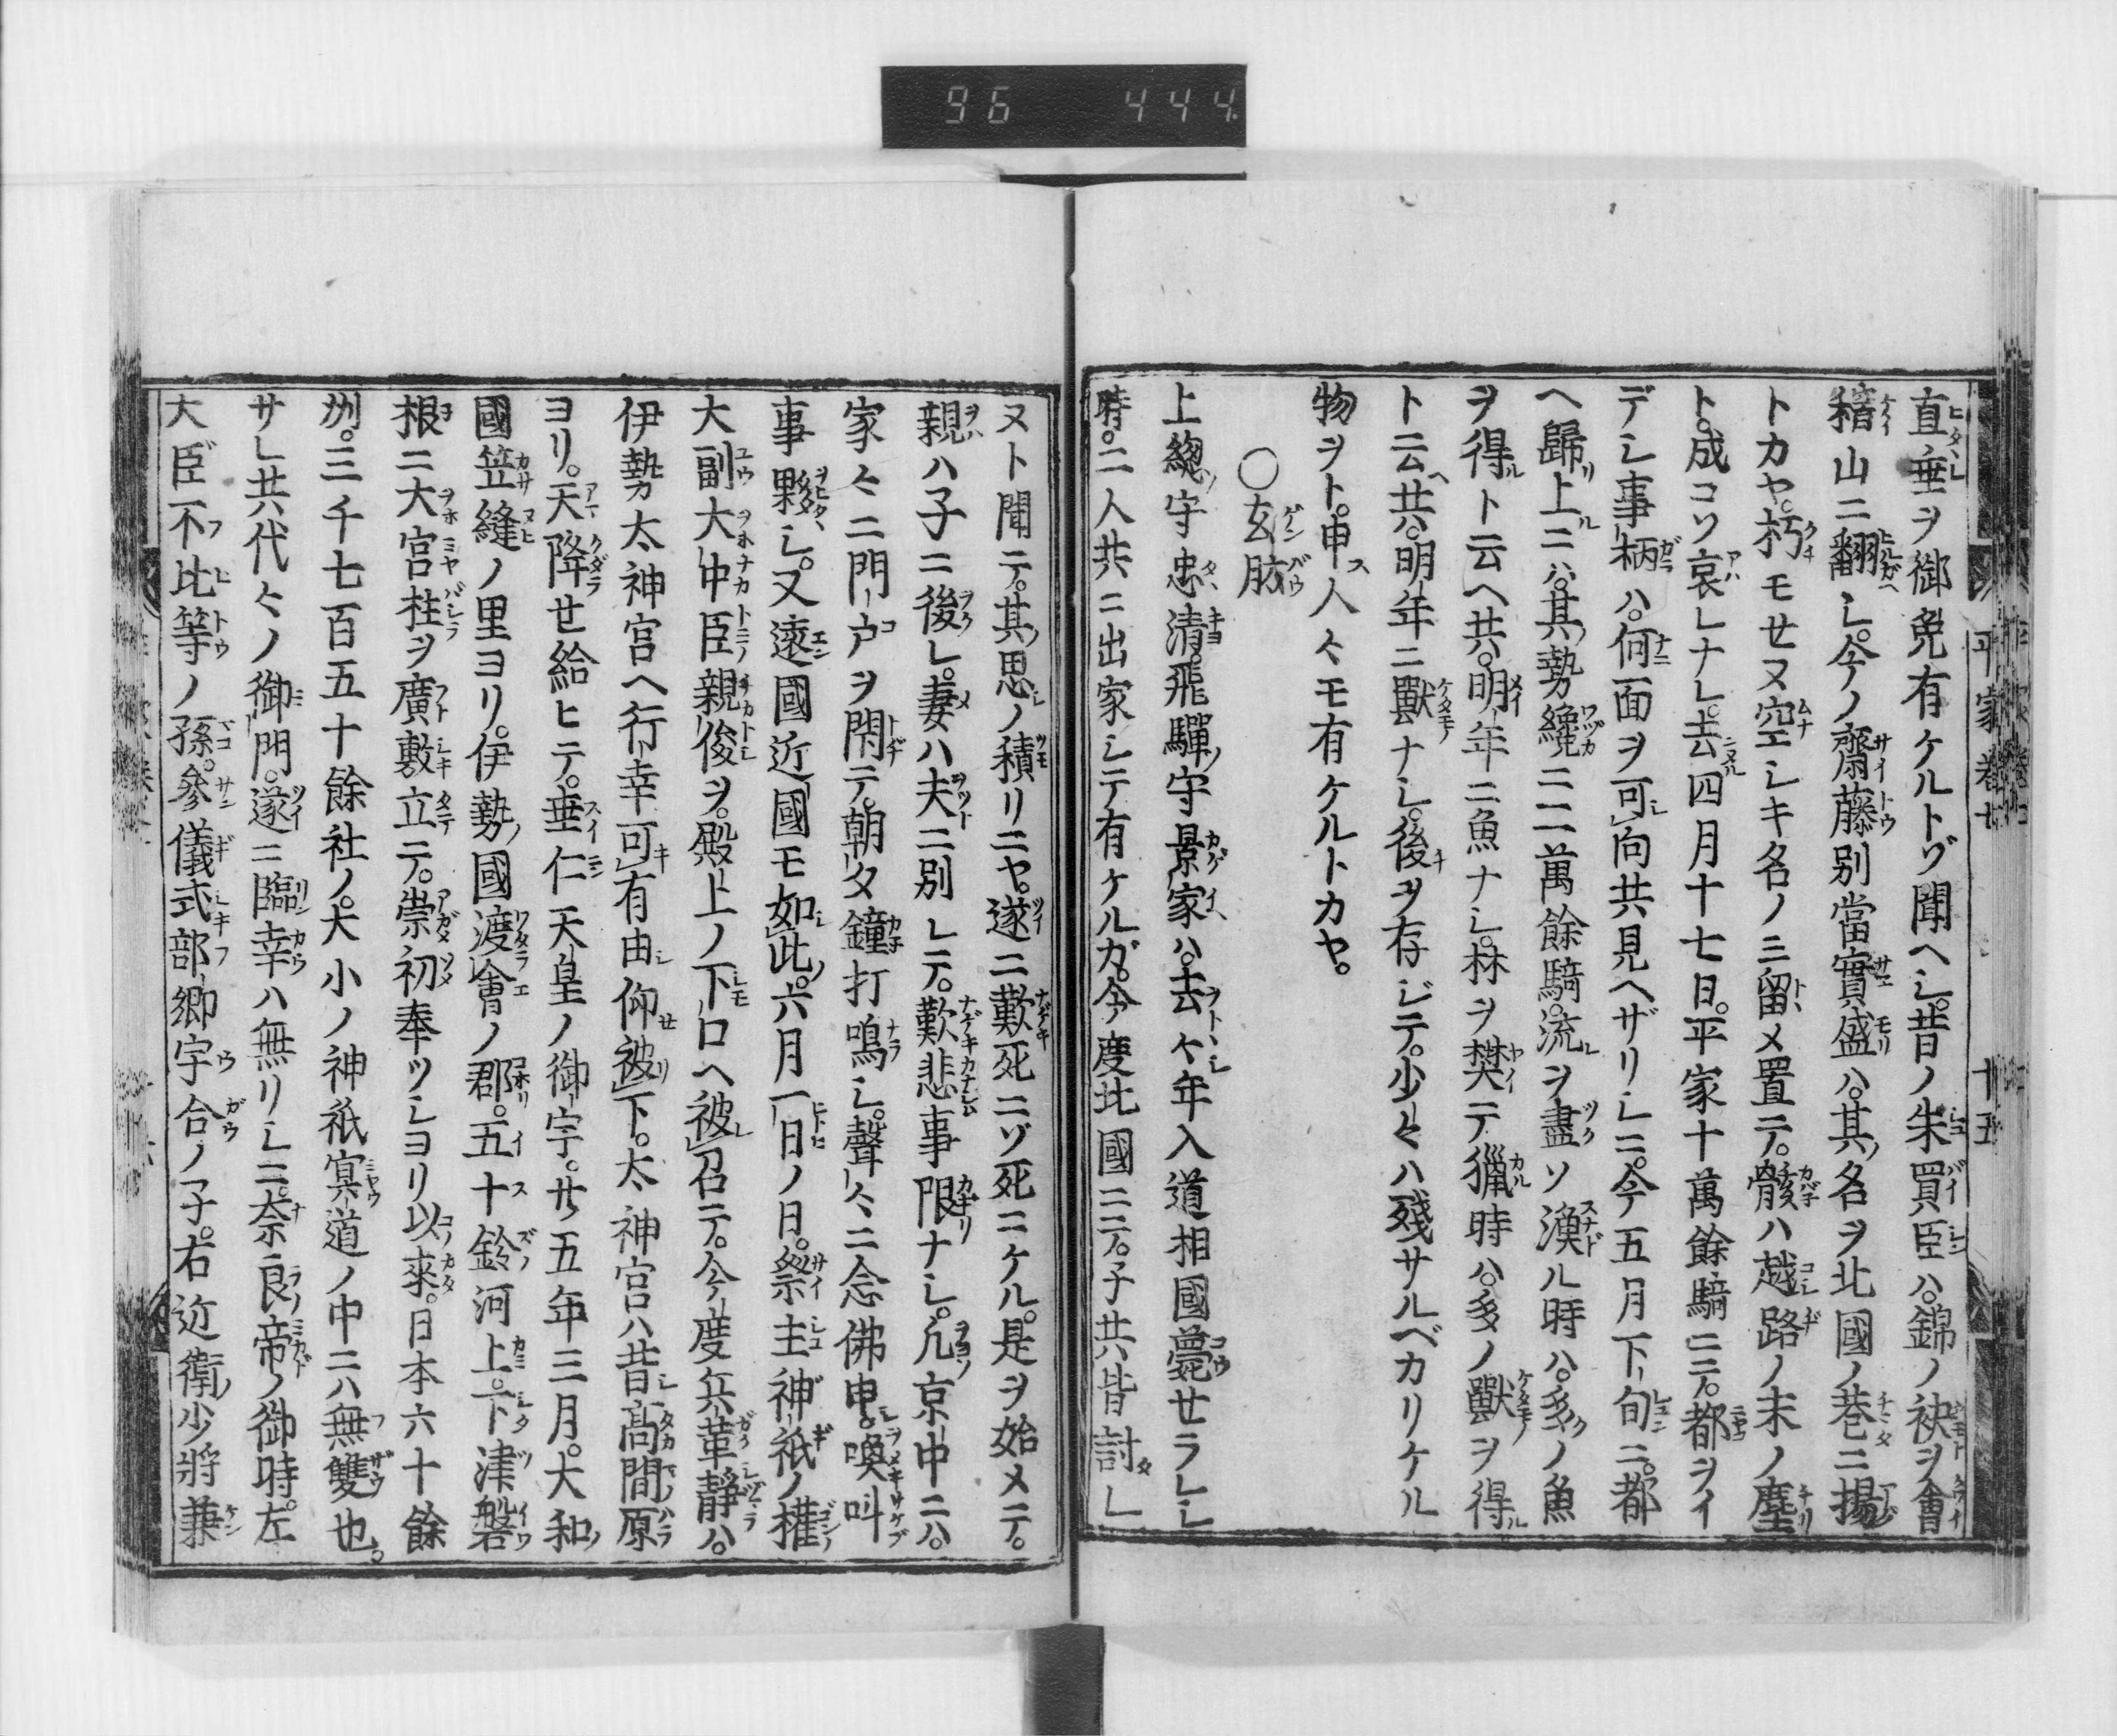 96 444
平家巻七 十五
直垂ヲ御免有ケルトゾ聞ヘシ。昔ノ朱買臣ハ。錦ノ袂ヲ會
稽山ニ翻シ。今ノ齋藤別當實盛ハ。其ノ名ヲ北國ノ巷ニ揚
トカヤ。朽モセヌ空シキ名ノミ留メ置テ。骸ハ越路ノ末ノ塵
ト。成コソ哀レナレ。去四月十七日。平家十萬餘騎ニテ。都ヲイ
デシ事柄ハ。何面ヲ可向共見ヘザリシニ。今五月下旬ニ。都
ヘ歸リ上ルニハ。其ノ勢纔ニ二萬餘騎。流ヲ盡ソ漁ル時ハ。多クノ魚
ヲ得ルト云ヘ共。明年ニ魚ナシ。林ヲ樊テ獵時ハ。多ノ獸ヲ得ル
ト云ヘ共。明年ニ獸ナシ。後ヲ存ジテ。少々ハ殘サルベカリケル
物ヲト。申ス人々モ有ケルトカヤ。
〇玄肪
上總ノ守忠清。飛驒ノ守景家ハ。去々年入道相國薨セラレシ
時。二人共ニ出家シテ有ケルガ。今度北國ニテ。子共皆討レ
ヌト聞テ。其ノ思ノ積リニヤ。遂ニ歎死ニゾ死ニケル。是ヲ始メテ。
親ハ子ニ後レ。妻ハ夫ニ別レテ。歎悲事限ナシ。凡京中ニハ。
家々ニ門戸ヲ閇テ。朝夕鐘打鳴シ。聲々ニ念佛申。喚叫
事夥シ。又遠國近國モ如此。六月一日ノ日。祭主神祇ノ權
大副大中臣親俊ヲ。殿上ノ下口ヘ被召テ。今度兵革靜ハ。
伊勢太神宮ヘ行幸可有由仰被下。太神宮ハ昔高間原
ヨリ。天降セ給ヒテ。垂仁天皇ノ御宇。廿五年三月。大和ノ
國笠縫ノ里ヨリ。伊勢ノ國渡會ノ郡。五十鈴河上。下津磐
根ニ大宮柱ヲ廣敷立テ。崇初奉ツシヨリ以來。日本六十餘
州。三千七百五十餘社ノ。大小ノ神祇冥道ノ中ニハ無雙也。
サレ共代々ノ御門。遂ニ臨幸ハ無リシニ。奈良ノ帝ノ御時。左
大臣不比等ノ孫。參儀式部卿宇合ノ子。右近衛ノ少將兼